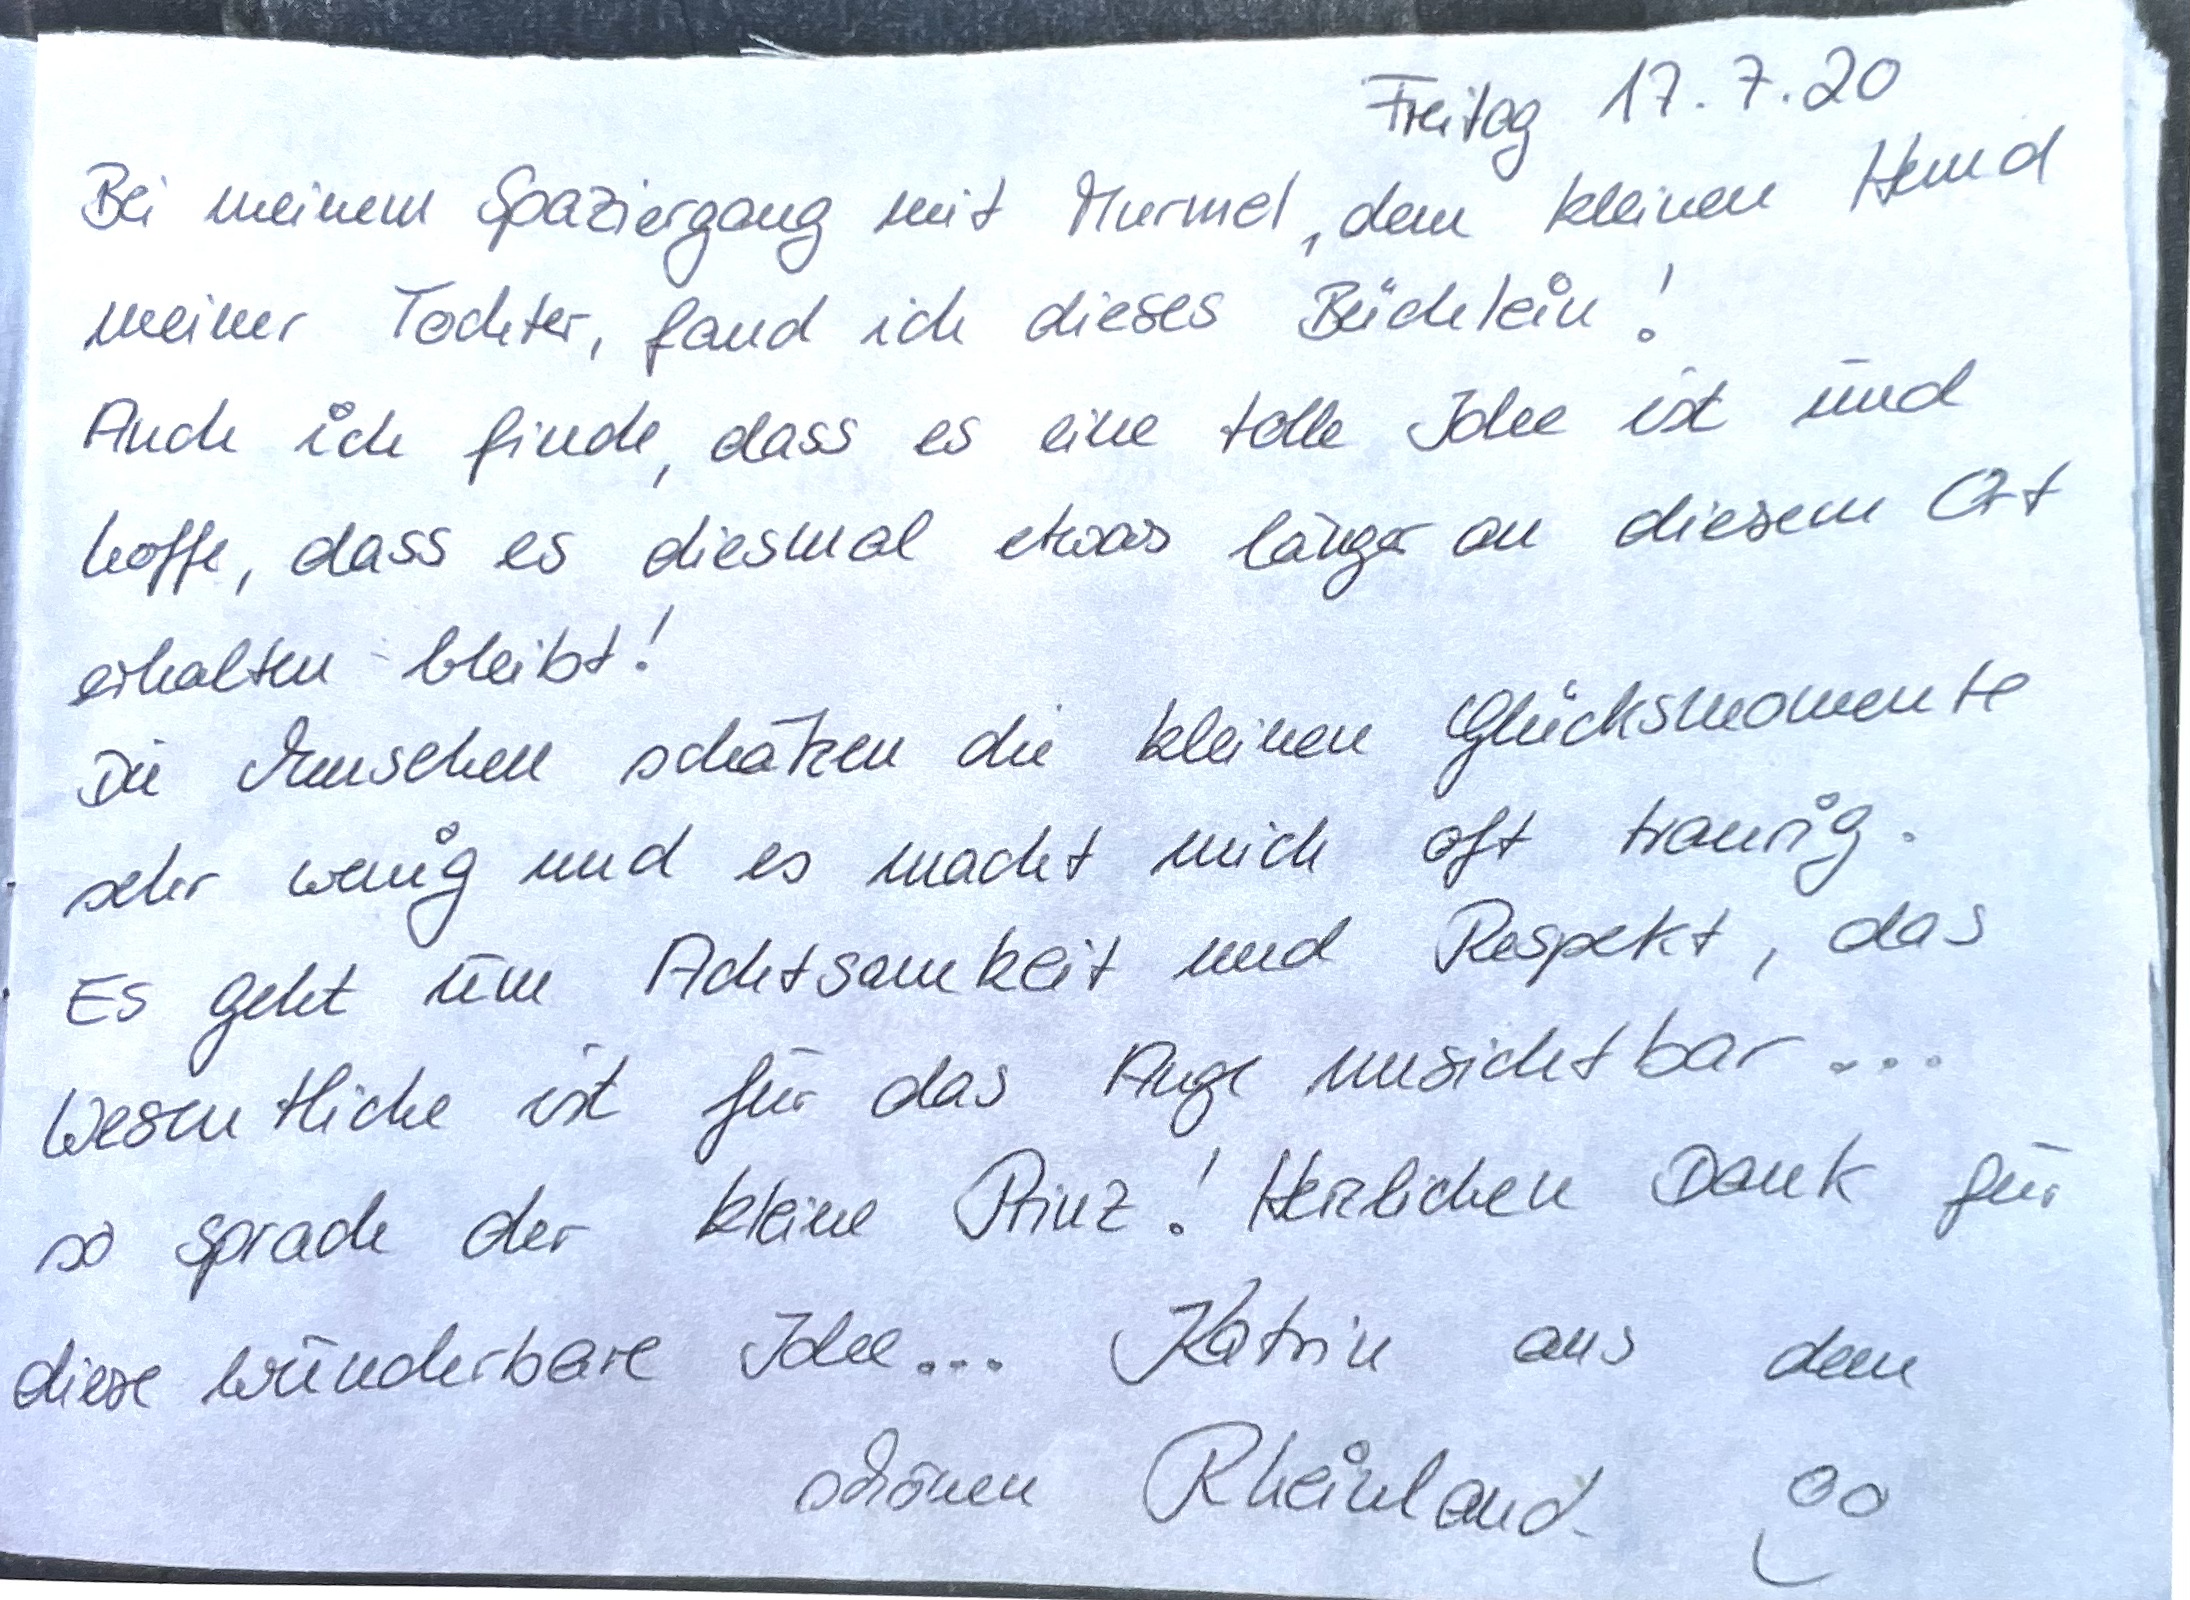 Freitag 17.7.20
Bei meinem Spaziergang mit Murmel, dem kleinen Hund
meiner Tochter, fand ich dieses Büchlein!
Auch ich finde, dass es eine tolle Idee ist und
hoffe, dass es diesmal etwas länger an diesem Ort
erhalten bleibt!
Die Menschen schätzen die kleinen Glücksmomente
sehr wenig und es macht mich oft traurig.
Es geht um Achtsamkeit und Respekt, das
Wesentliche ist für das Auge unsichtbar...
so sprach der kleine Prinz! Herzlichen Dank für
diese wunderbare Idee... Katrin aus dem
schönen Rheinland.